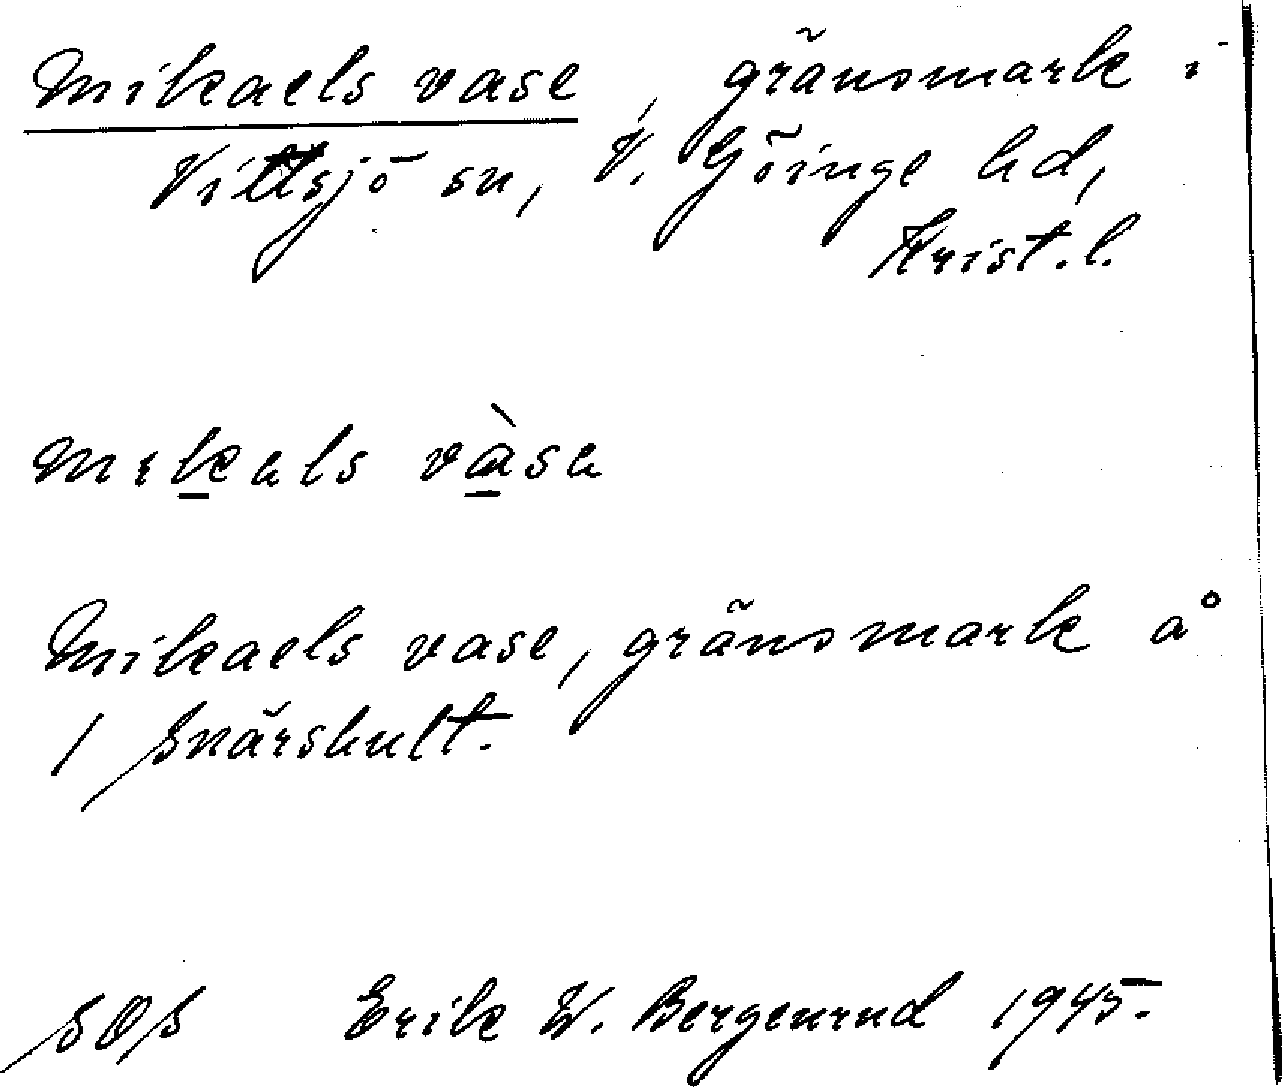 Mikaels vase, gränsmark i
Vittsjö sn, V. Göinge hd,
Krist. l.
mikals vàsa
Mikaels vase, gränsmark å
1 Snärshult.
SOS Erik W. Bergenrud 1945.